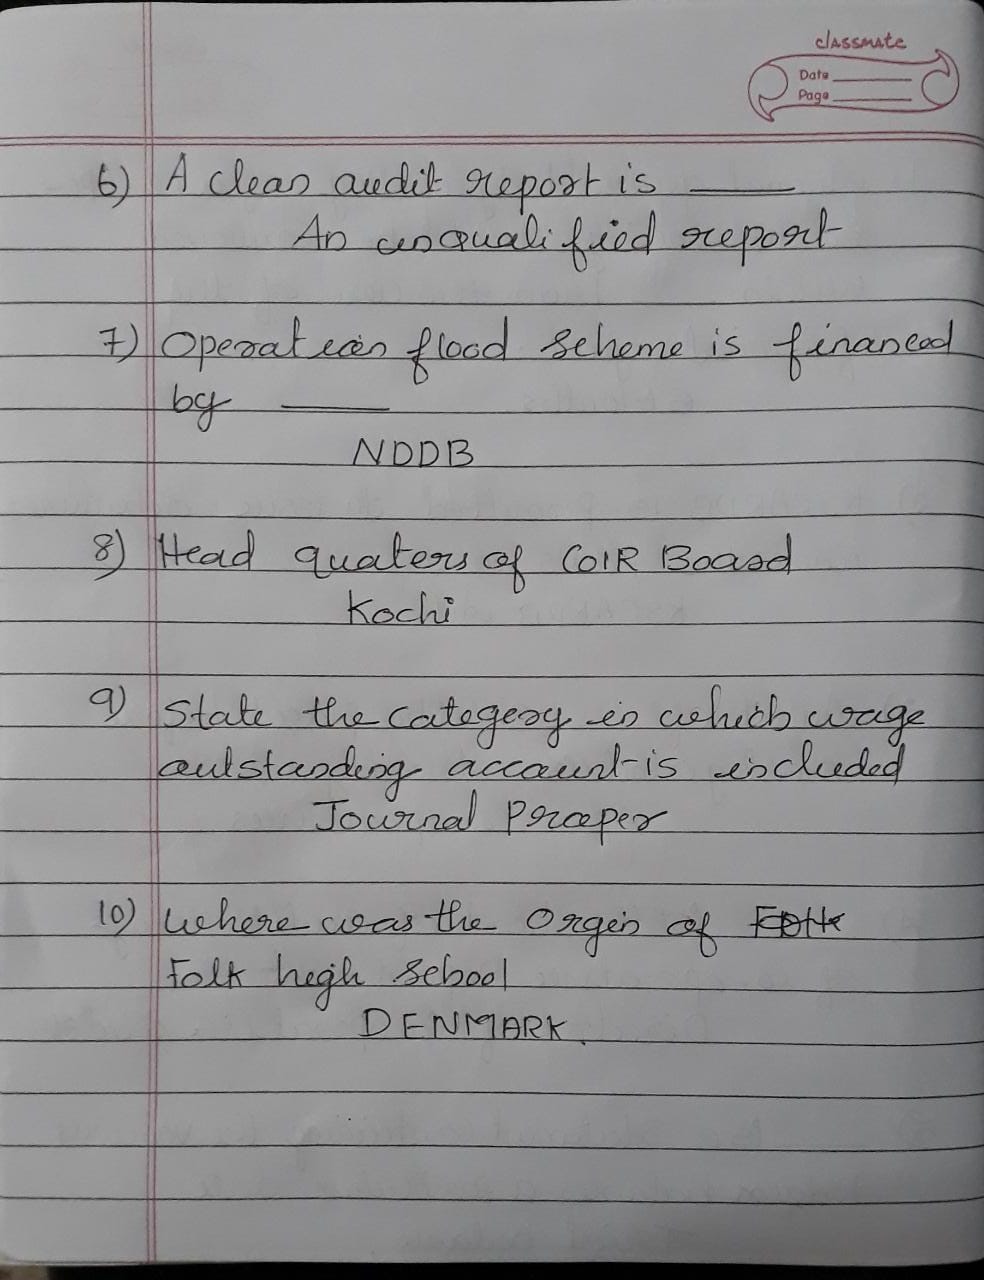 classmate
Date
Page
6) A clean audit report is
An unqualified report
7) Operation flood scheme is financed
by
NDDB
8) Head quaters of COIR Board
Kochi
9) State the category in which wage
outstanding account is included
Journal Proper
10) where was the Orgin of
Folk high school
DENMARK.